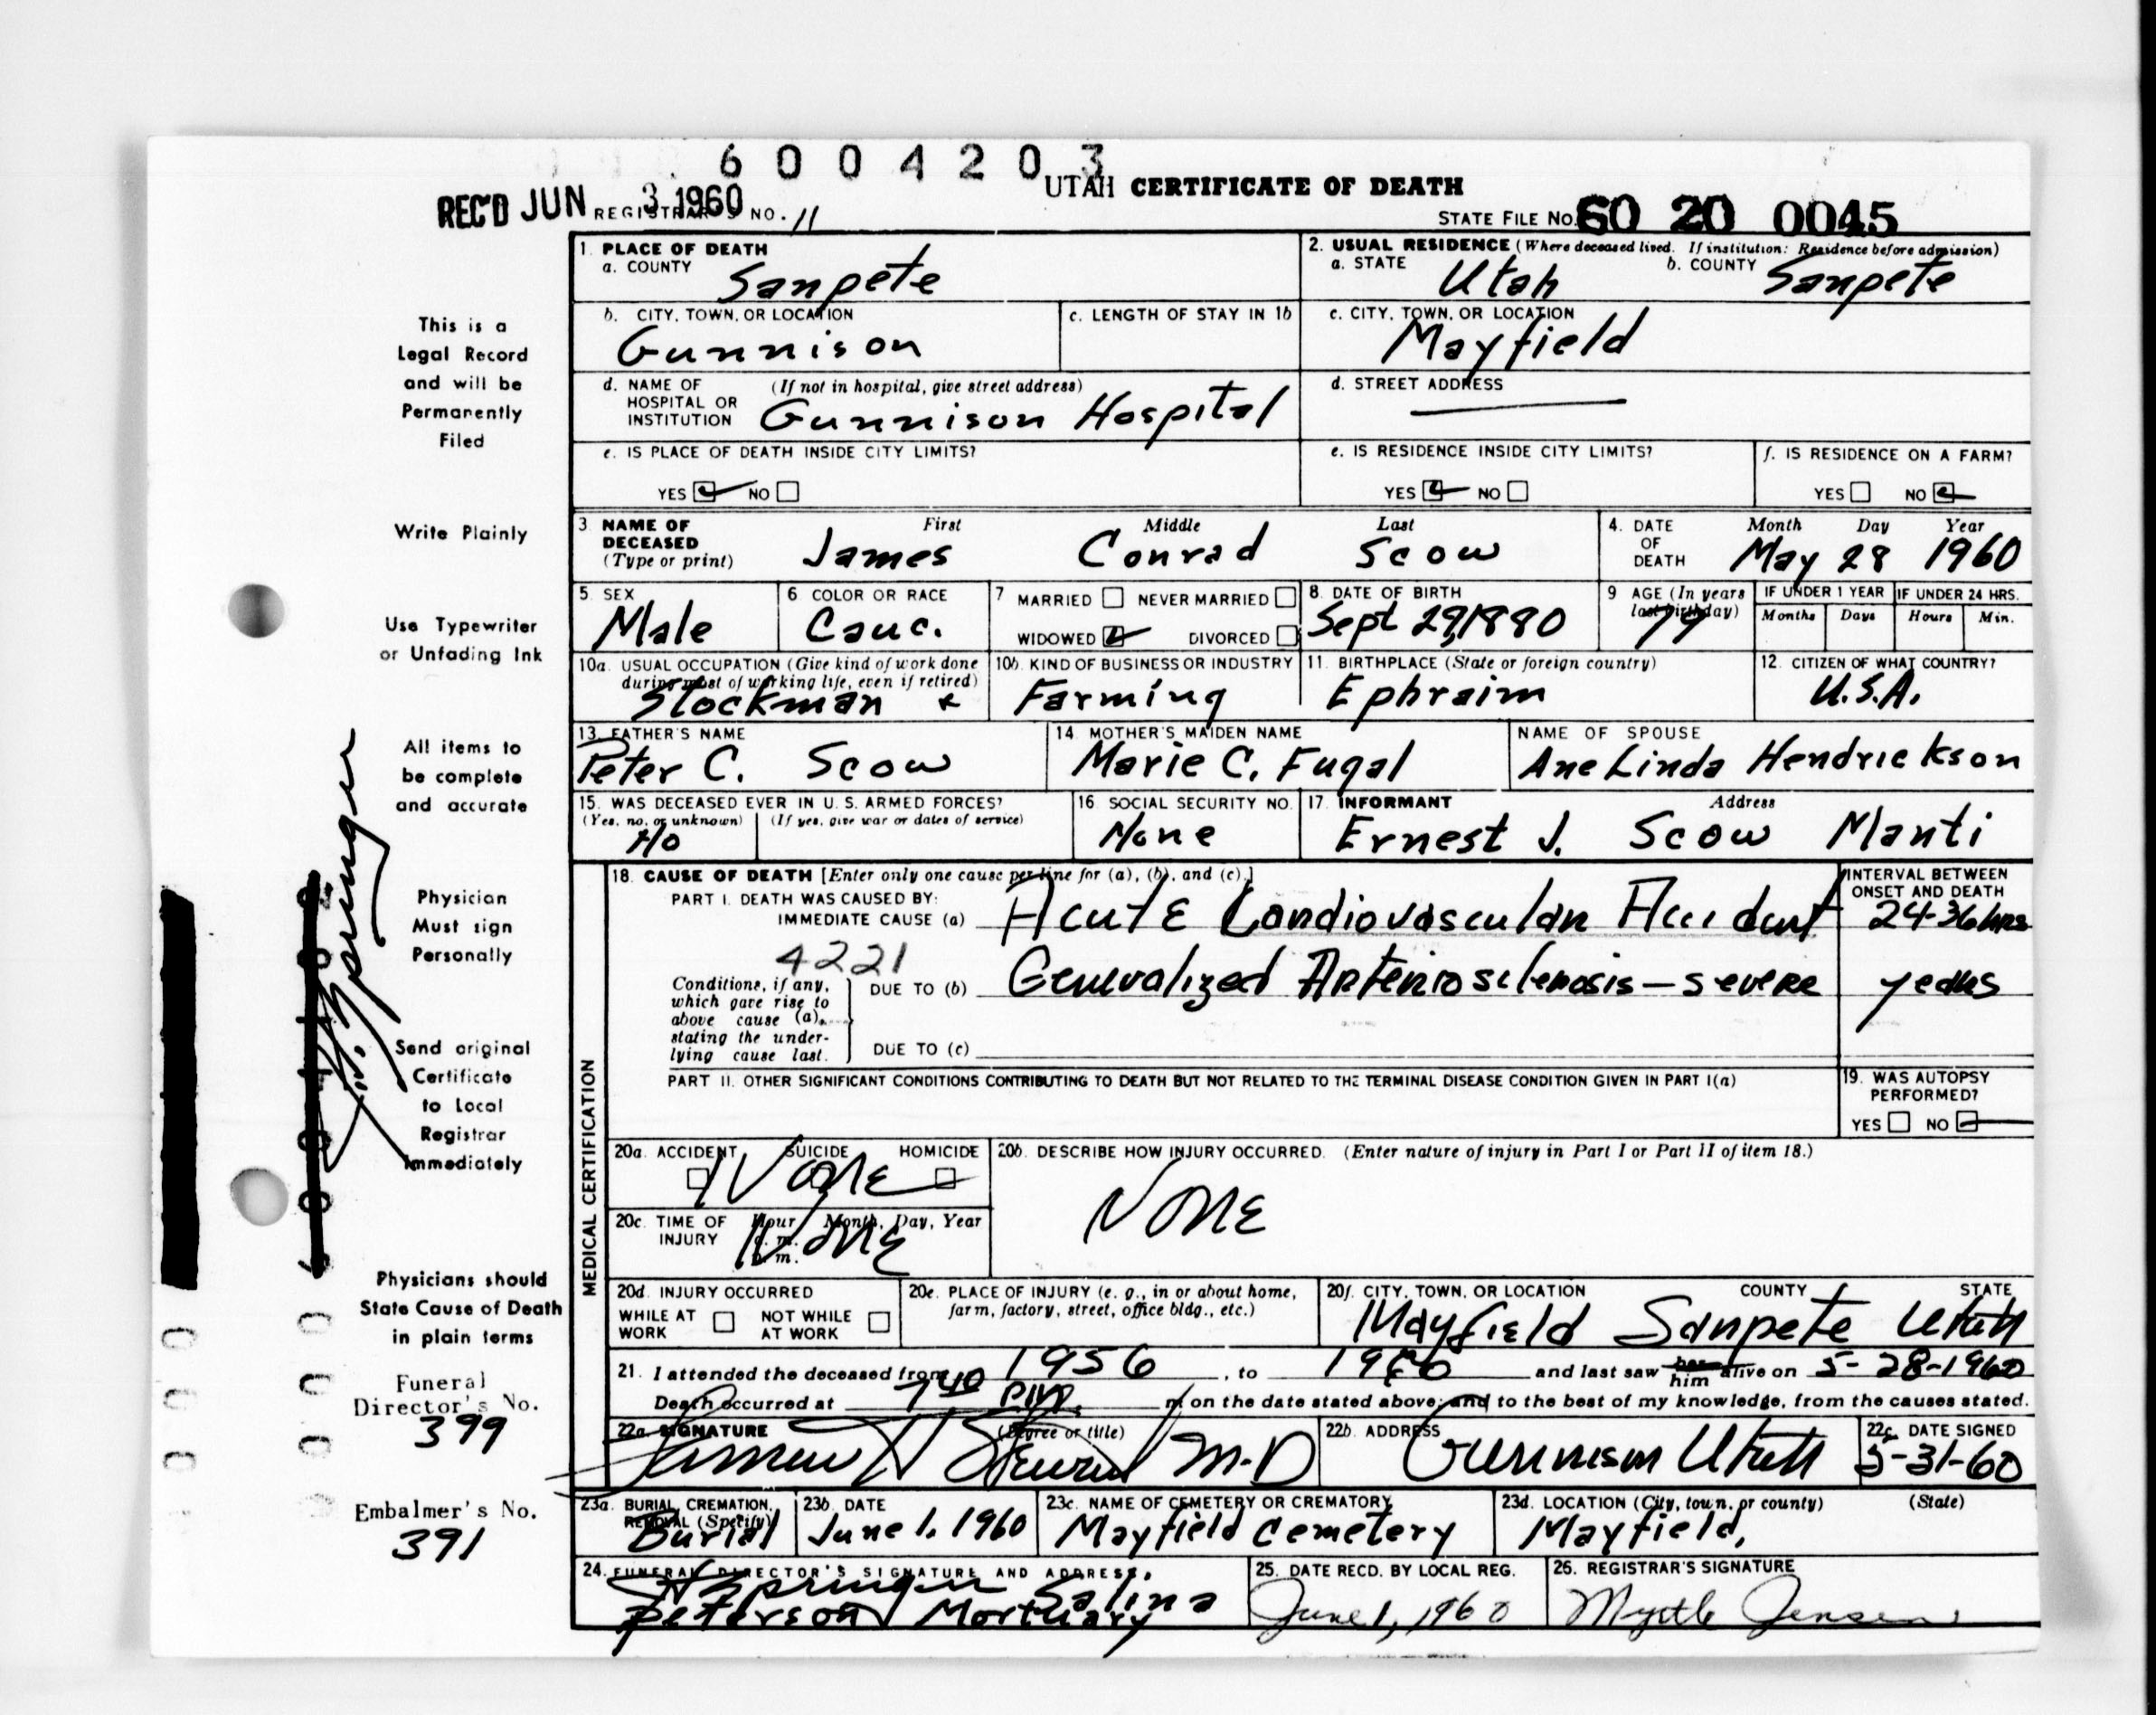 6004203
REC'D JUN 3 1960
REGISTRAR'S NO. 11
UTAH CERTIFICATE OF DEATH
STATE FILE NO. 60 20 0045
This is a
Legal Record
and will be
Permanently
Filed
Write Plainly
Use Typewriter
or Unfading Ink
All items to
be complete
and accurate
Physician
Must sign
Personally
Send original
Certificate
to Local
Registrar
Immediately
Physicians should
State Cause of Death
in plain terms
Funeral
Director's No.
399
Embalmer's No.
391
Springer
1. PLACE OF DEATH
a. COUNTY Sanpete
2. USUAL RESIDENCE (Where deceased lived. If institution: Residence before admission)
a. STATE Utah b. COUNTY Sanpete
b. CITY, TOWN, OR LOCATION Gunnison
c. LENGTH OF STAY IN 1b
c. CITY, TOWN, OR LOCATION Mayfield
d. NAME OF HOSPITAL OR INSTITUTION (If not in hospital, give street address) Gunnison Hospital
d. STREET ADDRESS
e. IS PLACE OF DEATH INSIDE CITY LIMITS?
YES NO
e. IS RESIDENCE INSIDE CITY LIMITS?
YES NO
f. IS RESIDENCE ON A FARM?
YES NO
3. NAME OF DECEASED (Type or print) First James Middle Conrad Last Scow
4. DATE OF DEATH Month Day Year May 28 1960
5. SEX Male
6. COLOR OR RACE Cauc.
7 MARRIED NEVER MARRIED
WIDOWED DIVORCED
8. DATE OF BIRTH Sept 29, 1880
9 AGE (In years last birthday) 79
IF UNDER 1 YEAR Months Days
IF UNDER 24 HRS. Hours Min.
10a. USUAL OCCUPATION (Give kind of work done during most of working life, even if retired) Stockman &
10b. KIND OF BUSINESS OR INDUSTRY Farming
11. BIRTHPLACE (State or foreign country) Ephraim
12. CITIZEN OF WHAT COUNTRY? U.S.A.
13. FATHER'S NAME Peter C. Scow
14. MOTHER'S MAIDEN NAME Marie C. Fugal
NAME OF SPOUSE Ane Linda Hendrickson
15. WAS DECEASED EVER IN U. S. ARMED FORCES?
(Yes, no, or unknown) No (If yes, give war or dates of service)
16. SOCIAL SECURITY NO. None
17. INFORMANT Address Ernest J. Scow Manti
MEDICAL CERTIFICATION
18. CAUSE OF DEATH [Enter only one cause per line for (a), (b), and (c).]
INTERVAL BETWEEN ONSET AND DEATH
PART I. DEATH WAS CAUSED BY:
IMMEDIATE CAUSE (a) Acute Cardiovascular Accident 24-36 hrs
4221
Conditions, if any, which gave rise to above cause (a), stating the under-lying cause last.
DUE TO (b) Generalized Arteriosclerosis - severe years
DUE TO (c)
PART II. OTHER SIGNIFICANT CONDITIONS CONTRIBUTING TO DEATH BUT NOT RELATED TO THE TERMINAL DISEASE CONDITION GIVEN IN PART I(a)
19. WAS AUTOPSY PERFORMED?
YES NO
20a. ACCIDENT SUICIDE HOMICIDE
None
20b. DESCRIBE HOW INJURY OCCURRED. (Enter nature of injury in Part I or Part II of item 18.)
None
20c. TIME OF INJURY Hour Month, Day, Year
a. m.
p. m.
None
20d. INJURY OCCURRED
WHILE AT WORK NOT WHILE AT WORK
20e. PLACE OF INJURY (e. g., in or about home, farm, factory, street, office bldg., etc.)
20f. CITY, TOWN, OR LOCATION COUNTY STATE
Mayfield Sanpete Utah
21. I attended the deceased from 1956, to 1960 and last saw her him alive on 5-28-1960
Death occurred at 7 40 P.M. m on the date stated above; and to the best of my knowledge, from the causes stated.
22a. SIGNATURE (Degree or title) M.D
22b. ADDRESS Gunnison Utah
22c. DATE SIGNED 5-31-60
23a. BURIAL, CREMATION, REMOVAL (Specify) Burial
23b. DATE June 1, 1960
23c. NAME OF CEMETERY OR CREMATORY Mayfield Cemetery
23d. LOCATION (City, town, or county) (State) Mayfield,
24. FUNERAL DIRECTOR'S SIGNATURE AND ADDRESS.
Springer Salina
Peterson Mortuary
25. DATE RECD. BY LOCAL REG. June 1, 1960
26. REGISTRAR'S SIGNATURE Myrtle Jensen